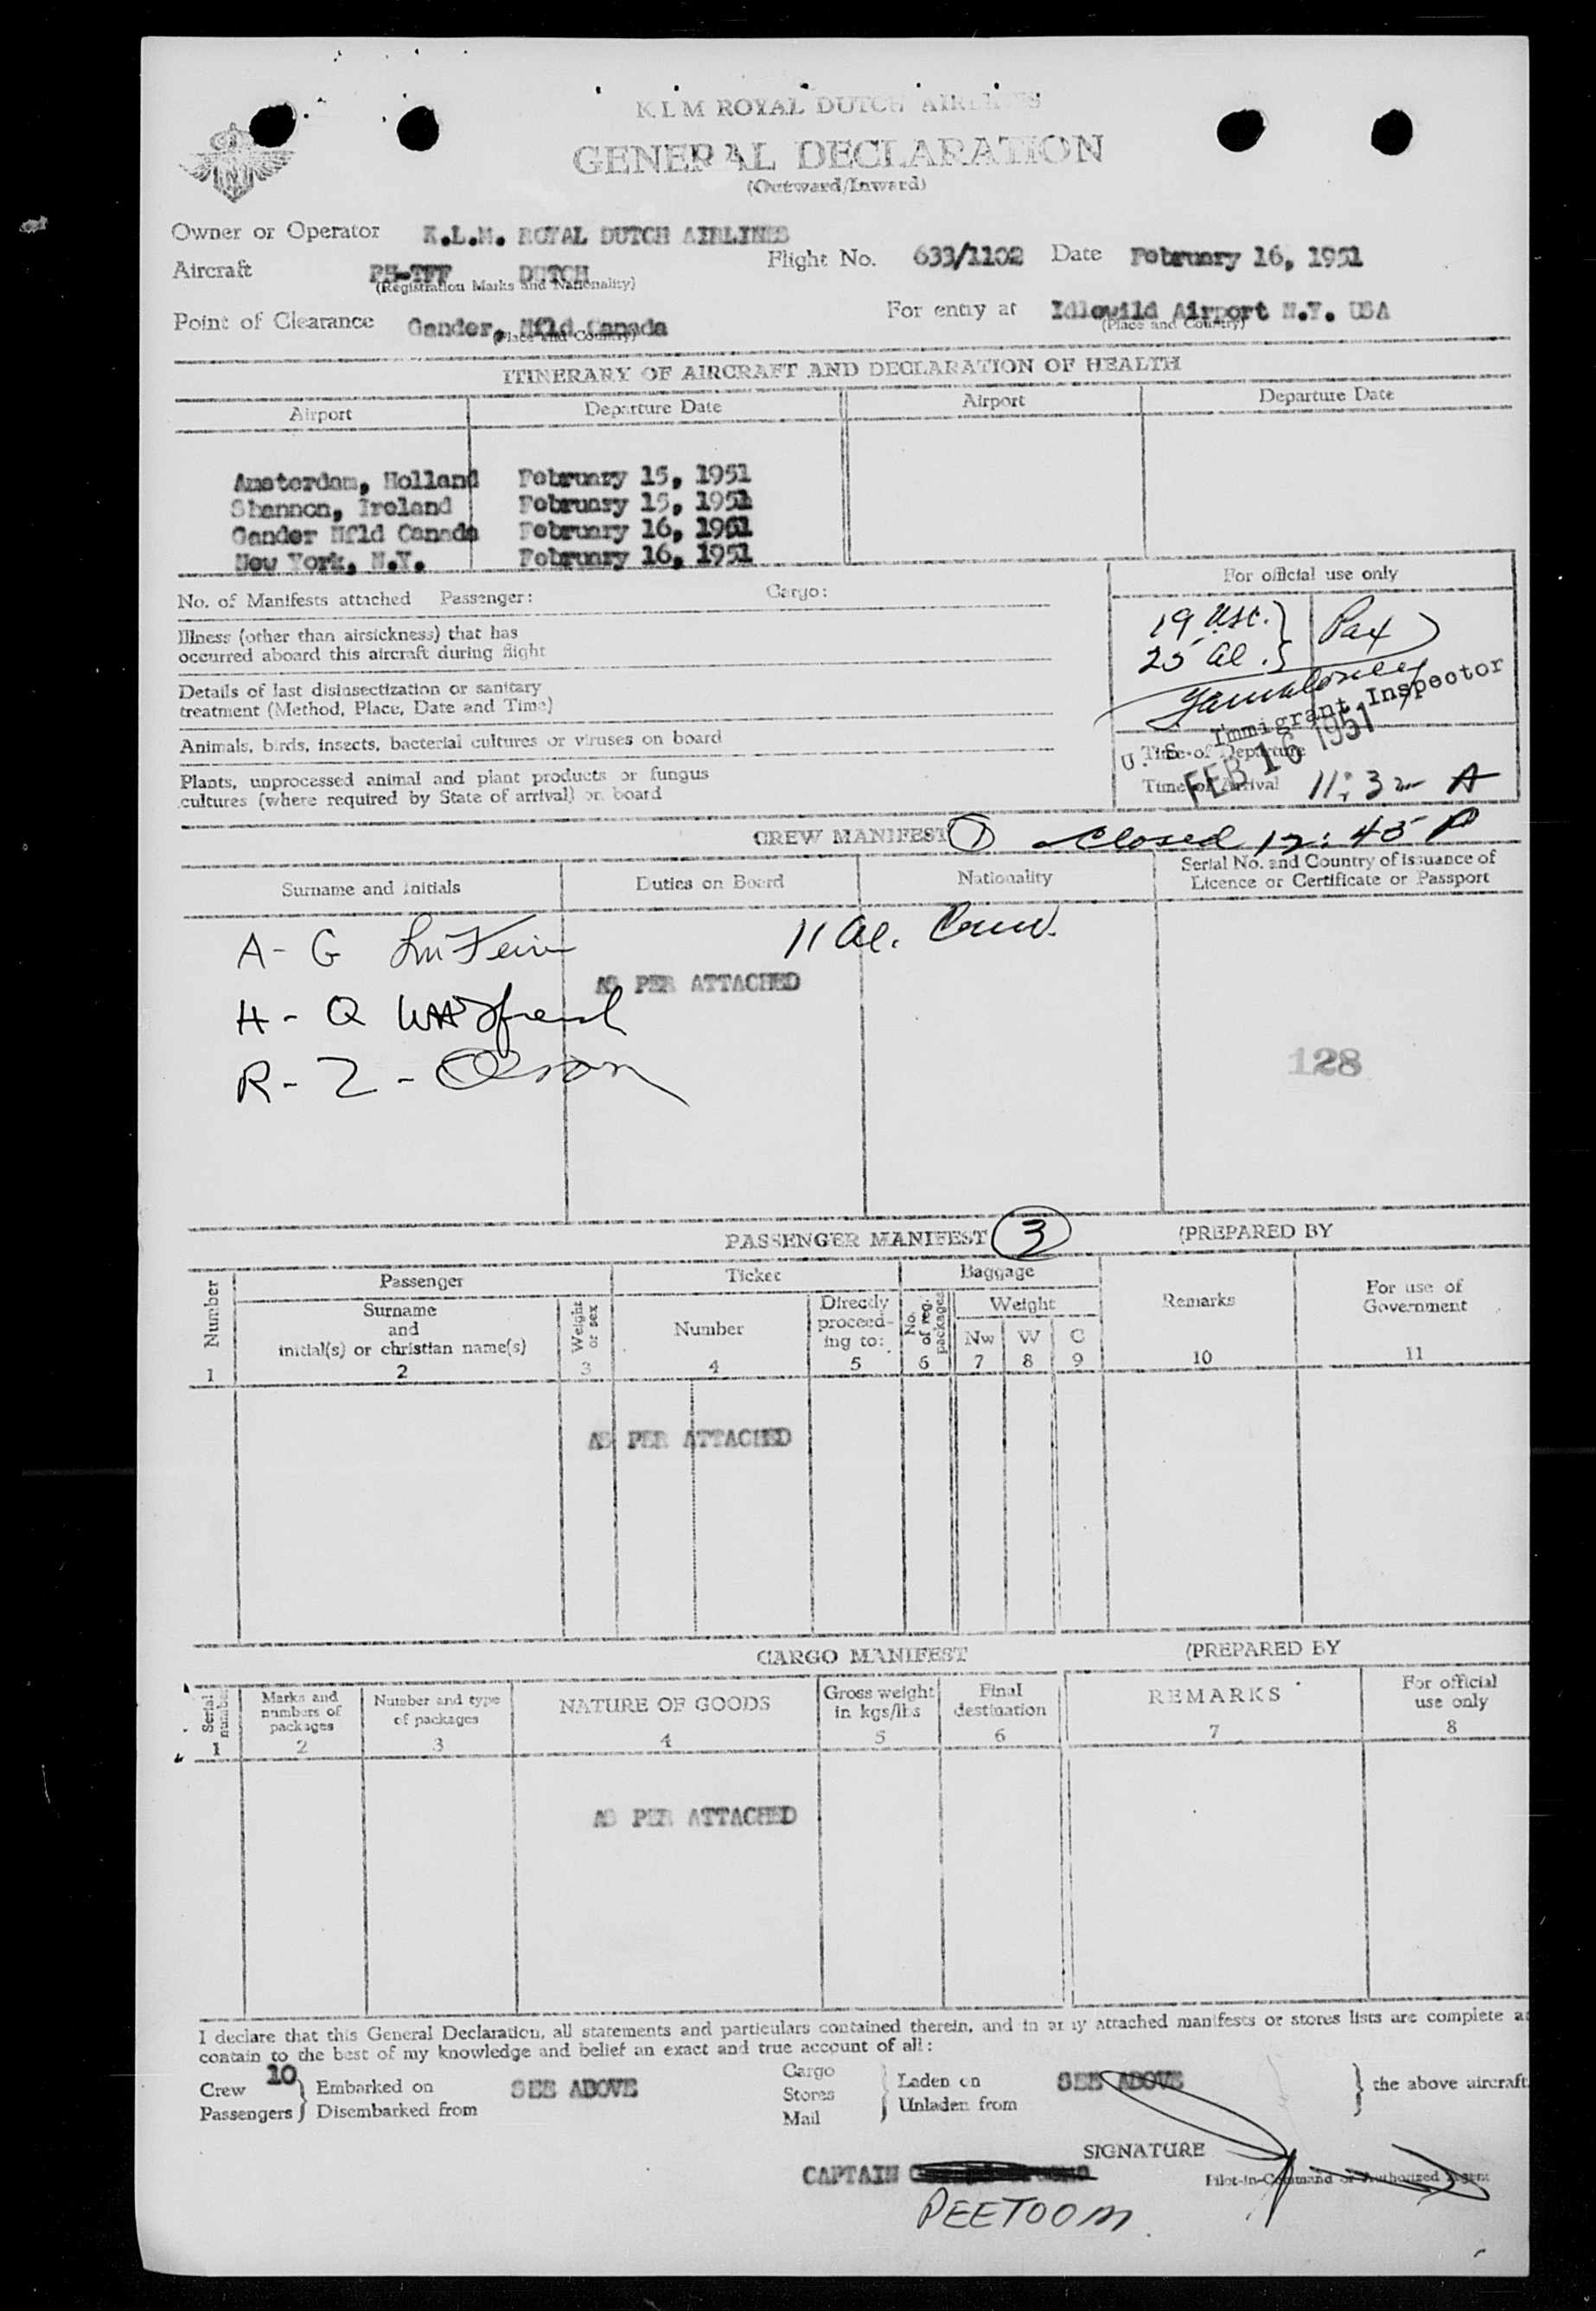 K L M ROYAL DUTCH AIRLINES
GENERAL DECLARATION
(Outward/Inward)
Owner or Operator K.L.M. ROYAL DUTCH AIRLINES
Aircraft PH-TFF DUTCH Flight No. 633/1102 Date February 16, 1951
(Registration Marks and Nationality)
Point of Clearance Gander, Nfld Canada For entry at Idlewild Airport N.Y. USA
(Place and Country) (Place and Country)
ITINERARY OF AIRCRAFT AND DECLARATION OF HEALTH
Airport Departure Date Airport Departure Date
Amsterdam, Holland February 15, 1951
Shannon, Ireland February 15, 1951
Gander Nfld Canada February 16, 1951
New York, N.Y. February 16, 1951
For official use only
No. of Manifests attached Passenger: Cargo:
19 Usc. } Pax
25 al. }
Illness (other than airsickness) that has
occurred aboard this aircraft during flight
Details of last disinsectization or sanitary
treatment (Method, Place, Date and Time)
U. S. Immigrant Inspector
Animals, birds, insects, bacterial cultures or viruses on board
Time of Departure
FEB 16 1951
Plants, unprocessed animal and plant products or fungus
cultures (where required by State of arrival) on board
Time of Arrival 11:32 A
CREW MANIFEST 1 Closed 12:45 P
Surname and Initials Duties on Board Nationality Serial No. and Country of issuance of
Licence or Certificate or Passport
11 al. Crew.
A - G
AS PER ATTACHED
H - Q
R - Z - Olson
128
PASSENGER MANIFEST 3 (PREPARED BY
Number Passenger Ticket Baggage Remarks For use of
Government
Surname
and
initial(s) or christian name(s)
Weight
or sex
Number
Directly
proceed-
ing to:
No.
of reg.
packages
Weight
Nw W C
1 2 3 4 5 6 7 8 9 10 11
AS PER ATTACHED
CARGO MANIFEST (PREPARED BY
Serial
number
Marks and
numbers of
packages
Number and type
of packages
NATURE OF GOODS
Gross weight
in kgs/lbs
Final
destination
REMARKS
For official
use only
1 2 3 4 5 6 7 8
AS PER ATTACHED
I declare that this General Declaration, all statements and particulars contained therein, and in any attached manifests or stores lists are complete a
contain to the best of my knowledge and belief an exact and true account of all:
Crew 10 } Embarked on SEE ABOVE Cargo } Laden on SEE ABOVE } the above aircraft
Passengers } Disembarked from Stores } Unladen from
Mail
SIGNATURE
CAPTAIN
Pilot-in-Command or Authorized Agent
PEETOOM